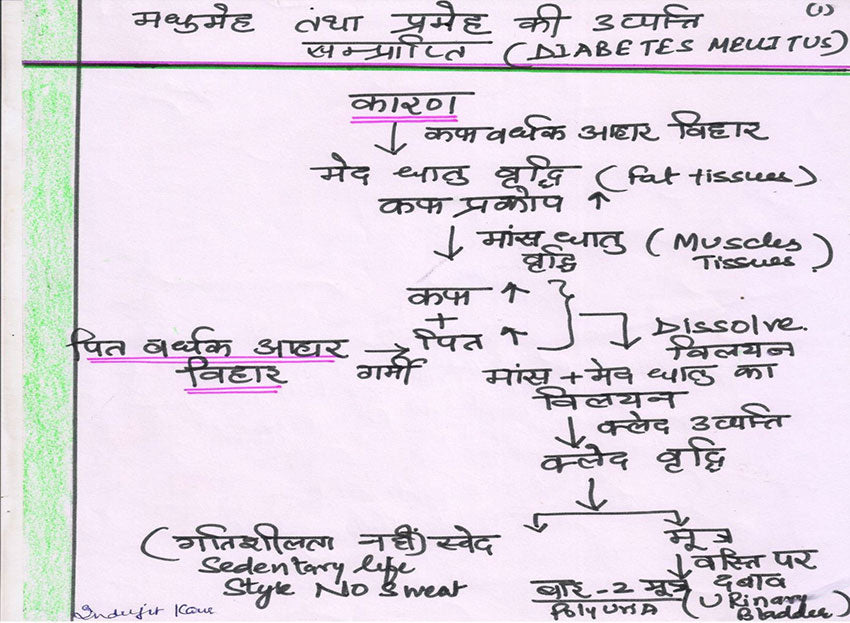 मधुमेह तथा प्रमेह की उत्पत्ति (1)
सम्प्राप्ति (DIABETES MELLITUS)
कारण
↓ कफ वर्धक आहार विहार
मेद धातु वृद्धि (Fat tissues)
कफ प्रकोप ↑
↓ मांस धातु (Muscles
वृद्धि Tissues)
कफ ↑
+
पित ↑
Dissolve.
विलयन
पित वर्धक आहार →
विहार गर्मी
मांस + मेद धातु का
विलयन
↓ क्लेद उत्पत्ति
क्लेद वृद्धि
↓
(गतिशीलता नहीं) स्वेद
Sedentary life
Style No Sweat
मूत्र
↓ वस्ति पर
दबाव
(Urinary
Bladder)
बार-2 मूत्र
Polyuria
Inderjit Kaur